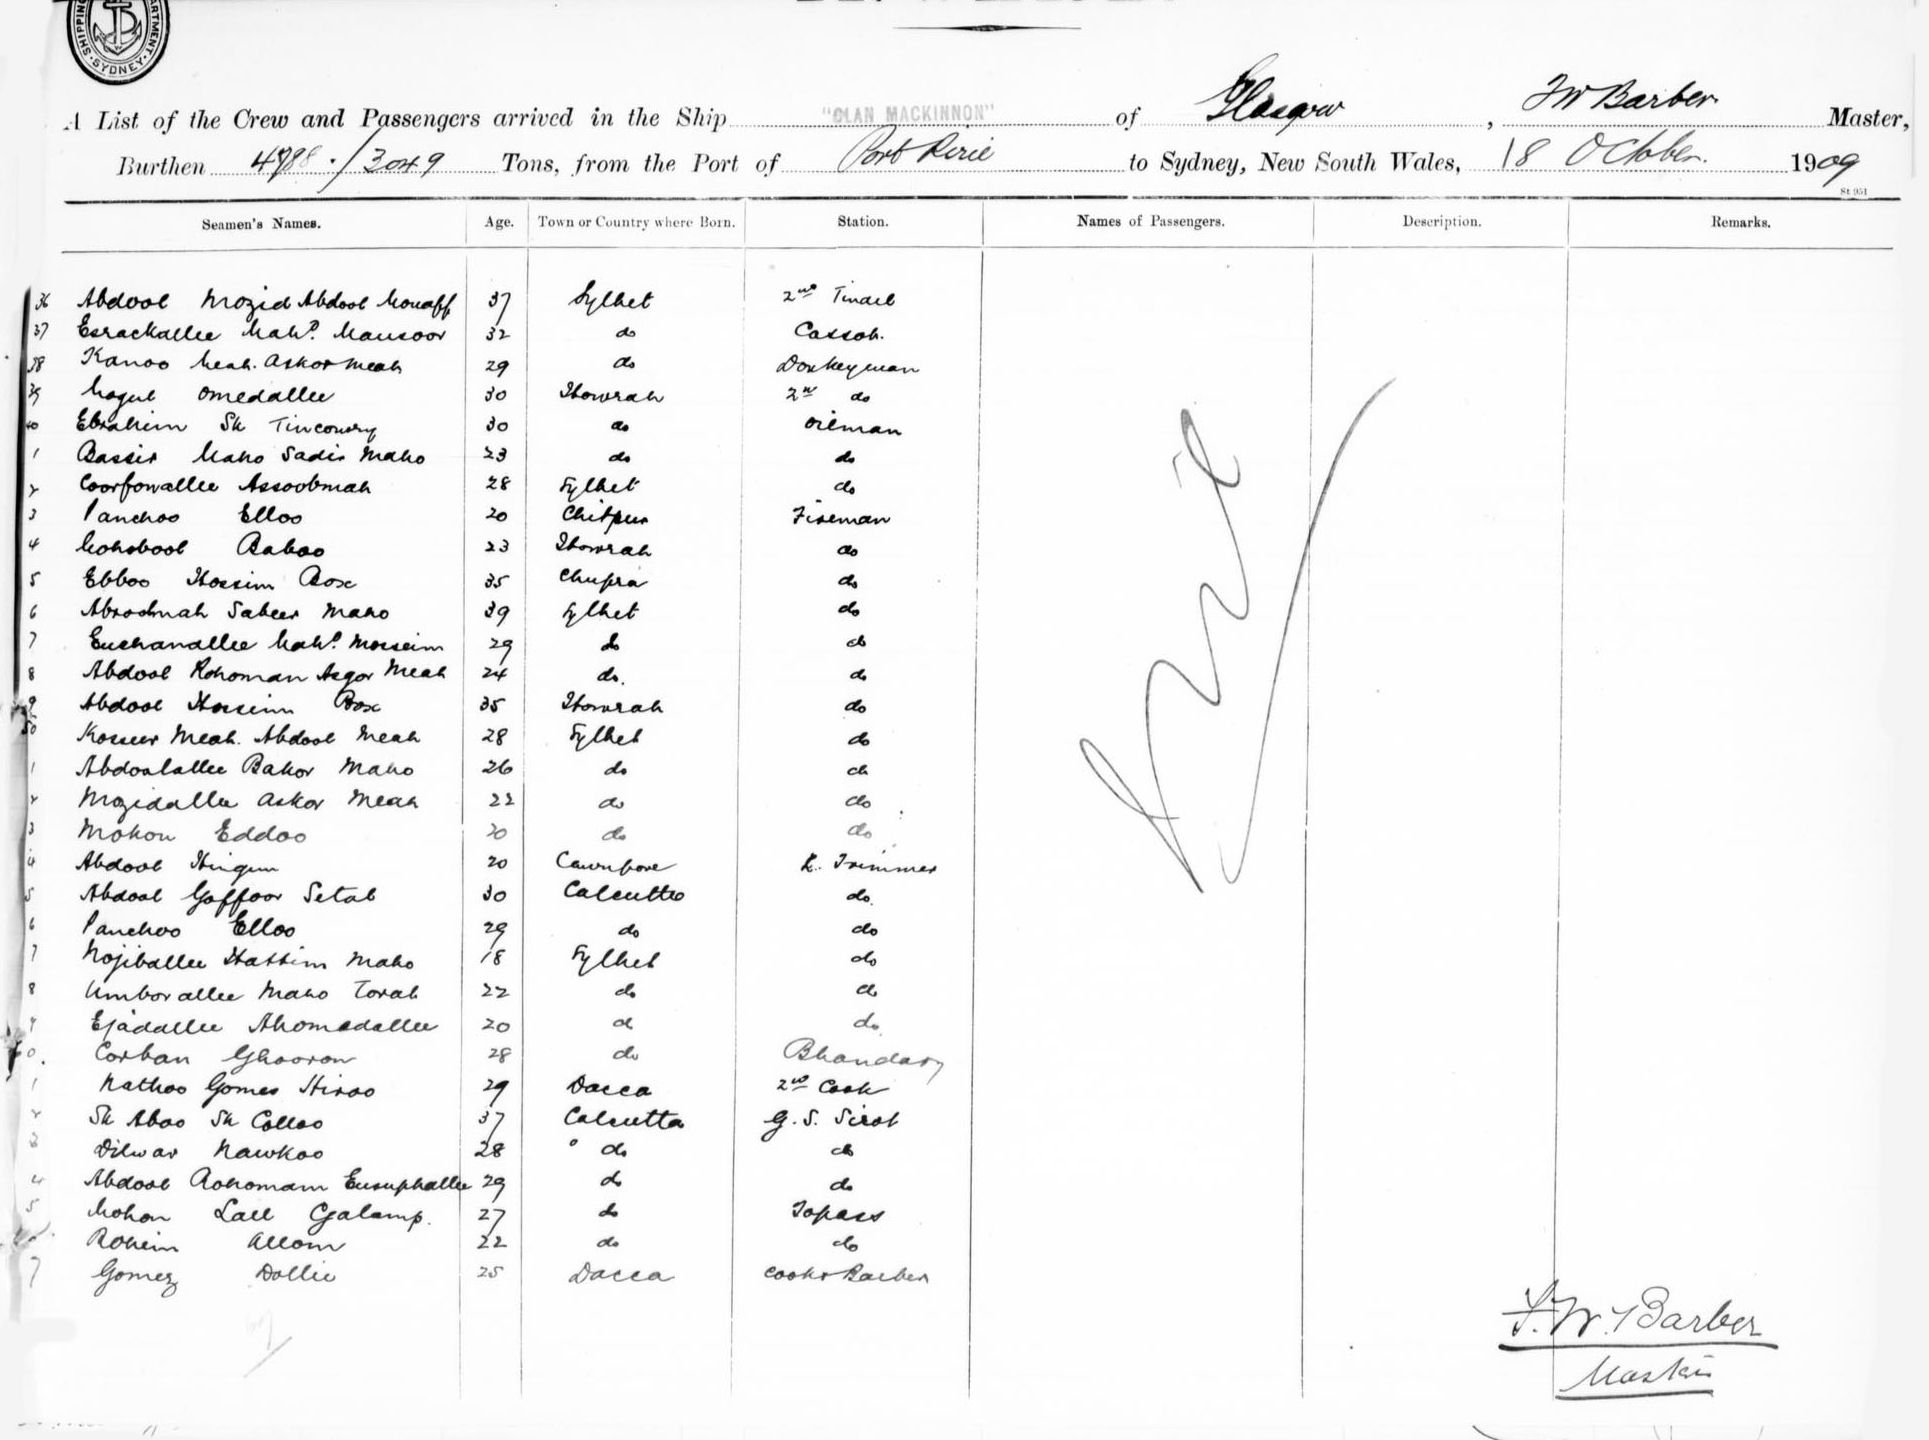 SHIPPING DEPARTMENT SYDNEY
A List of the Crew and Passengers arrived in the Ship "CLAN MACKINNON" of Glasgow, FW Barber Master,
Burthen 4798 . / 3049 Tons, from the Port of Port Pirie to Sydney, New South Wales, 18 October. 1909
St 951
Seamen's Names. Age. Town or Country where Born. Station. Names of Passengers. Description. Remarks.
36 Abdool Mozid Abdool 37 Sylhet 2nd Tindel
37 Esrackallee Mahd. Mansoor 32 do Cassab.
38 Kanoo Meah. Askor Meah 29 do Donkeyman
39 Mogul Omedallee 30 Howrah 2nd do
40 Ebrahim Sk Tincowry 30 do Oilman
1 Bassir Maho Sadir Maho 23 do do
2 Assoobmah 28 Sylhet do
3 Panchoo Elloo 20 Chitpur Fireman
4 Mohobool Baboo 23 Howrah do
5 Ebboo Hossim Box 35 Chupra do
6 Abroodmah Sabeer Maho 39 Sylhet do
7 Euchanallee Mahd. Mosseim 29 do do
8 Abdool Rohoman Asgor Meah 24 do. do
9 Abdool Hosseim Box 35 Howrah do
50 Kosseer Meah. Abdool Meah 28 Sylhet do
1 Abdoolallee Bakor Maho 26 do do
2 Mozidallee Askor Meah 22 do do
3 Mohon Eddoo 20 do do
4 Abdool Hingun 20 Cawnpore K. Trimmer
5 Abdool Gaffoor Setab 30 Calcutta do.
6 Panchoo Elloo 29 do do
7 Nojiballee Hassim Maho 18 Sylhet do
8 Umborallee Maho Torab 22 do do
9 Ejadallee Ahomadallee 20 do do.
0. Corban Ghooron 28 do Bhandary
1 Nathoo Gomes Hiroo 29 Dacca 2nd Cook
2 Sk Aboo Sk Colloo 37 Calcutta G. S. Sirot
3 Dilwar Nawkoo 28 do do
4 Abdool Rohomam Eusuphallee 29 do do
5 Mohon Lall Galamp. 27 do Topass
6 Rohim Allom 22 do do
7 Gomez Dollie 25 Dacca Cook & Barber
F. W. Barber
Master